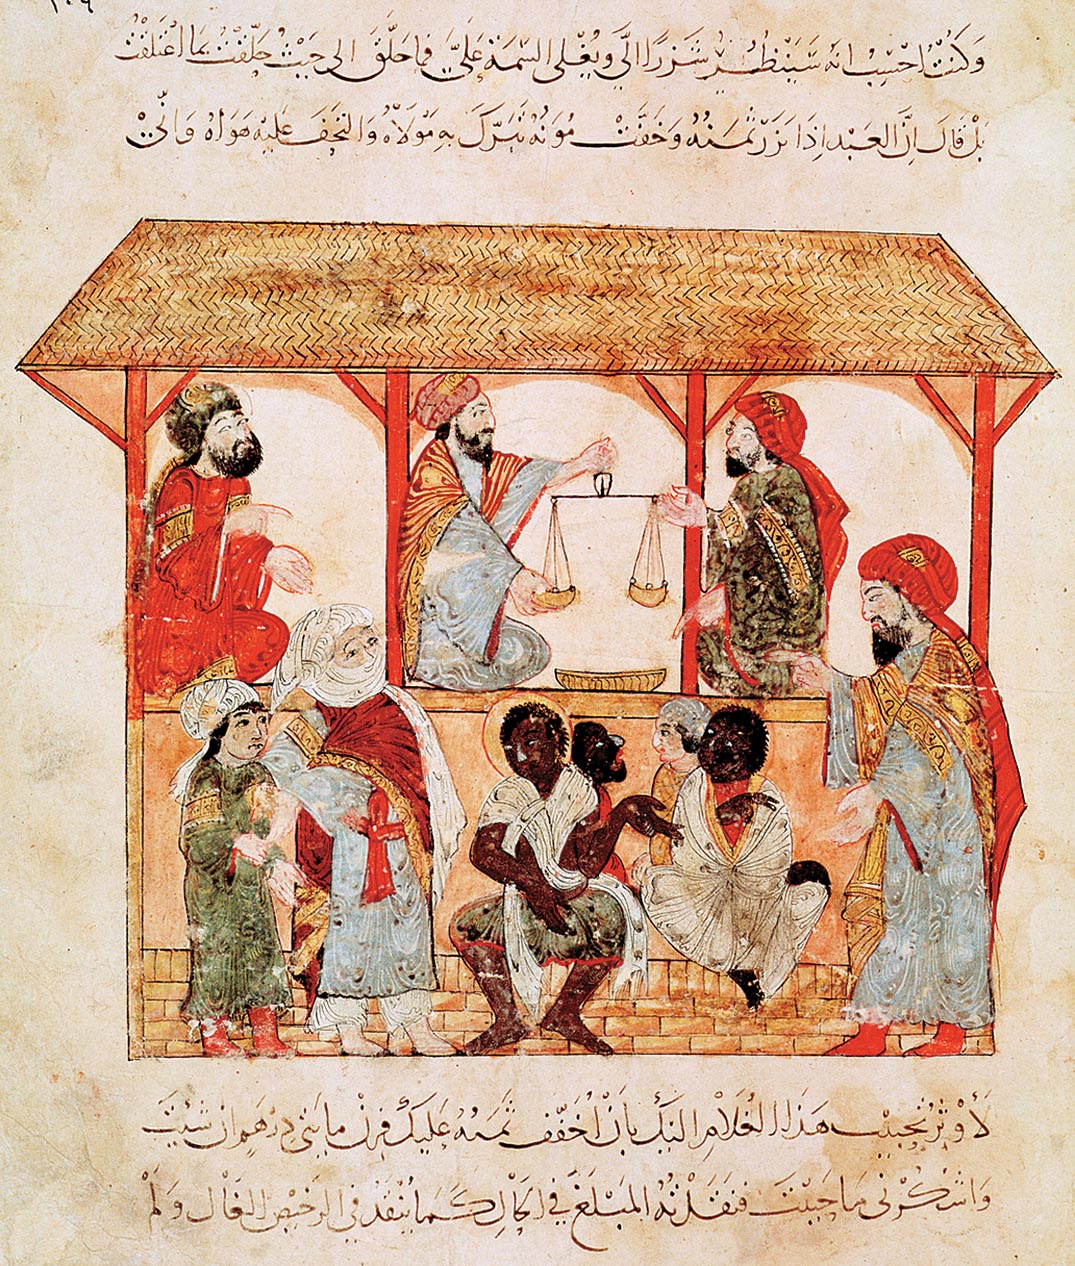 وَكُنْتُ اَحْسِبُ انه سَيَنْظُرُ شَزْرًا الَيَّ وَيُغْلِى السِّيمَةَ عَلَيَّ فما حَلَّقَ الى حَيْثُ حَلَّقْتُ بما اعْتَلَقْتُ
بَلْ قَالَ اِنَّ العَبْدَ اِذَا نَزَرَ ثَمَنُهُ وَخَفَّتْ مُوَنُهُ تَبَرَّكَ بِهِ مَوْلَاهُ وَالتَحَفَ عَلَيْهِ هَوَاهُ وَاِنِّى
لَأُوثِرُ تَحْبِيبَ هَذَا الغُلَامِ اِلَيْكَ بِاَنْ اُخَفِّفَ ثَمَنَهُ عَلَيْكَ فَزِنْ مايتى دِرْهَمٍ اِنْ شِيتَ
وَاشْكُرْ لى مَا حَيِيتَ فَنَقَدْتُهُ المَبْلَغَ فِى الحَالِ كَمَا يُنْقَدُ فِى الرَخِيْصِ الغَالِ وَلَمْ